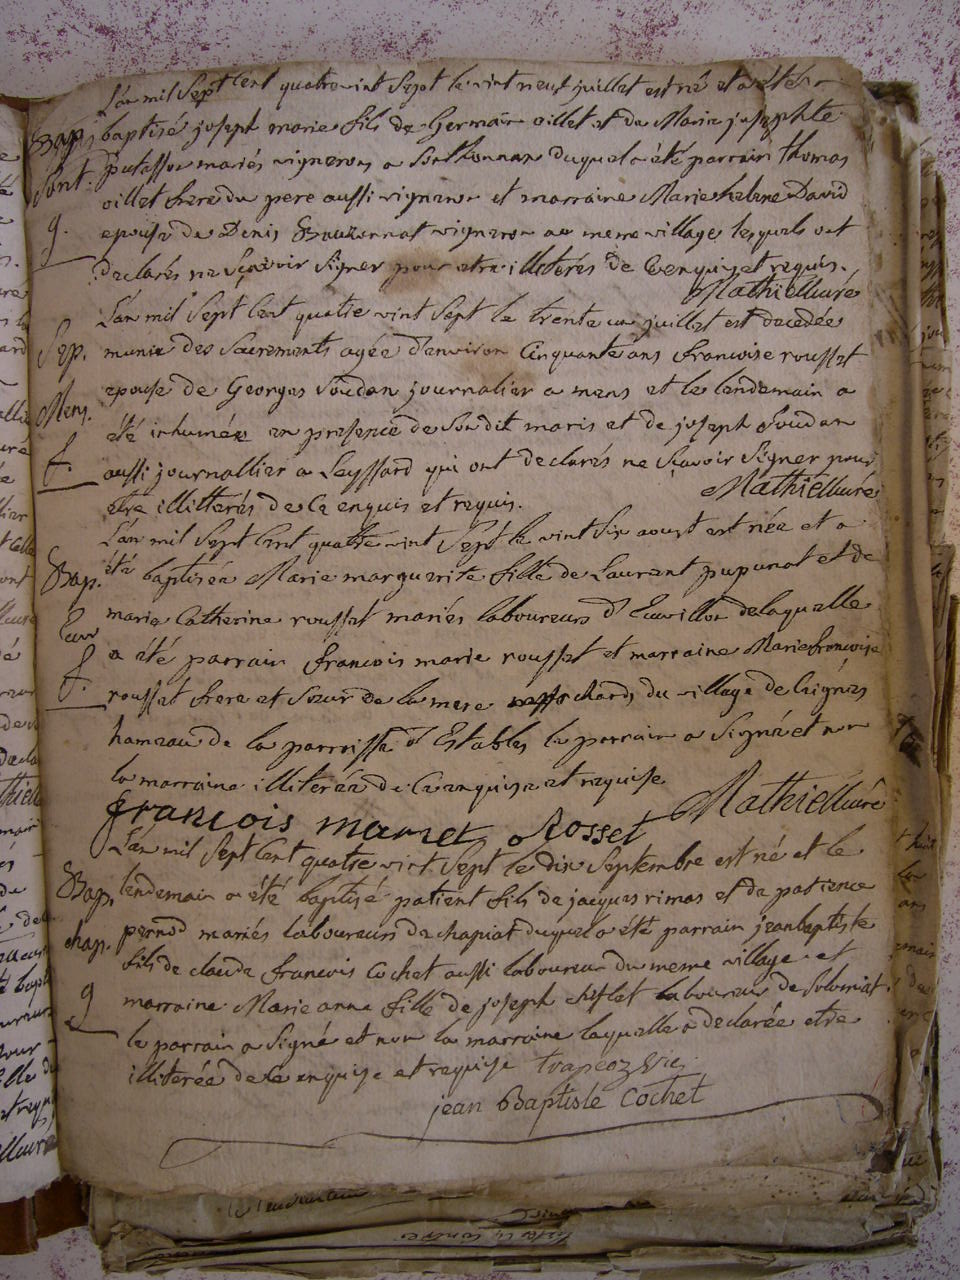 L'an mil Sept Cent quatrevint Sept le vint neuf juillet est né et a été
Bap. baptisé joseph marie fils de Germain oillet et de Marie josephte
Sont. putassou mariés vignerons a Sonthonnax duquel a été parrain thomas
oillet frere du pere aussi vigneron et marraine Marie helene David
g. epouse de Denis Bouzonnat vigneron au meme village lesquels ont
declarés ne Sçavoir Signer pour etre illiterés de ce enquis et requis.
Mathieu curé
L'an mil Sept Cent quatre vint Sept le trente un juillet est decedée
Sep. munie des Sacrements agée d'environ Cinquante ans francoise rousset
Mens. epouse de Georges Soudan journalier a mens et le lendemain a
été inhumée en presence de Son dit maris et de joseph Soudan
f. aussi journallier a Leyssard qui ont declarés ne Sçavoir Signer pour
etre illitterés de Ce enquis et requis.
Mathieu curé
L'an mil Sept Cent quatre vint Sept le vint Six aoust est née et a
Bap. été baptiséa Marie marguerite fille de Laurent pupunat et de
marie Catherine rousset mariés laboureurs d'Euvillon delaquelle
f. a été parrain francois marie rousset et marraine Marie francoise
rousset frere et Soeur de la mere du village de
hameau de la parroisse d'Estables le parrain a Signé et non
la marraine illiterée de Ce enquise et requise
francois mariet Rosset Mathieu curé
L'an mil Sept Cent quatre vint Sept le dix Septembre est né et le
Bap. lendemain a été baptisé patient fils de jacques rimos et de patience
chap. pernod mariés laboureurs de chapiat duquel a été parrain jean baptiste
fils de claude francois Cochet aussi laboureur du meme village et
g marraine Marie anne fille de joseph laboureur de Solomiat
le parrain a Signé et non la marraine laquelle a declarée etre
illiterée de Ce enquise et requise vic.
jean Baptiste Cochet